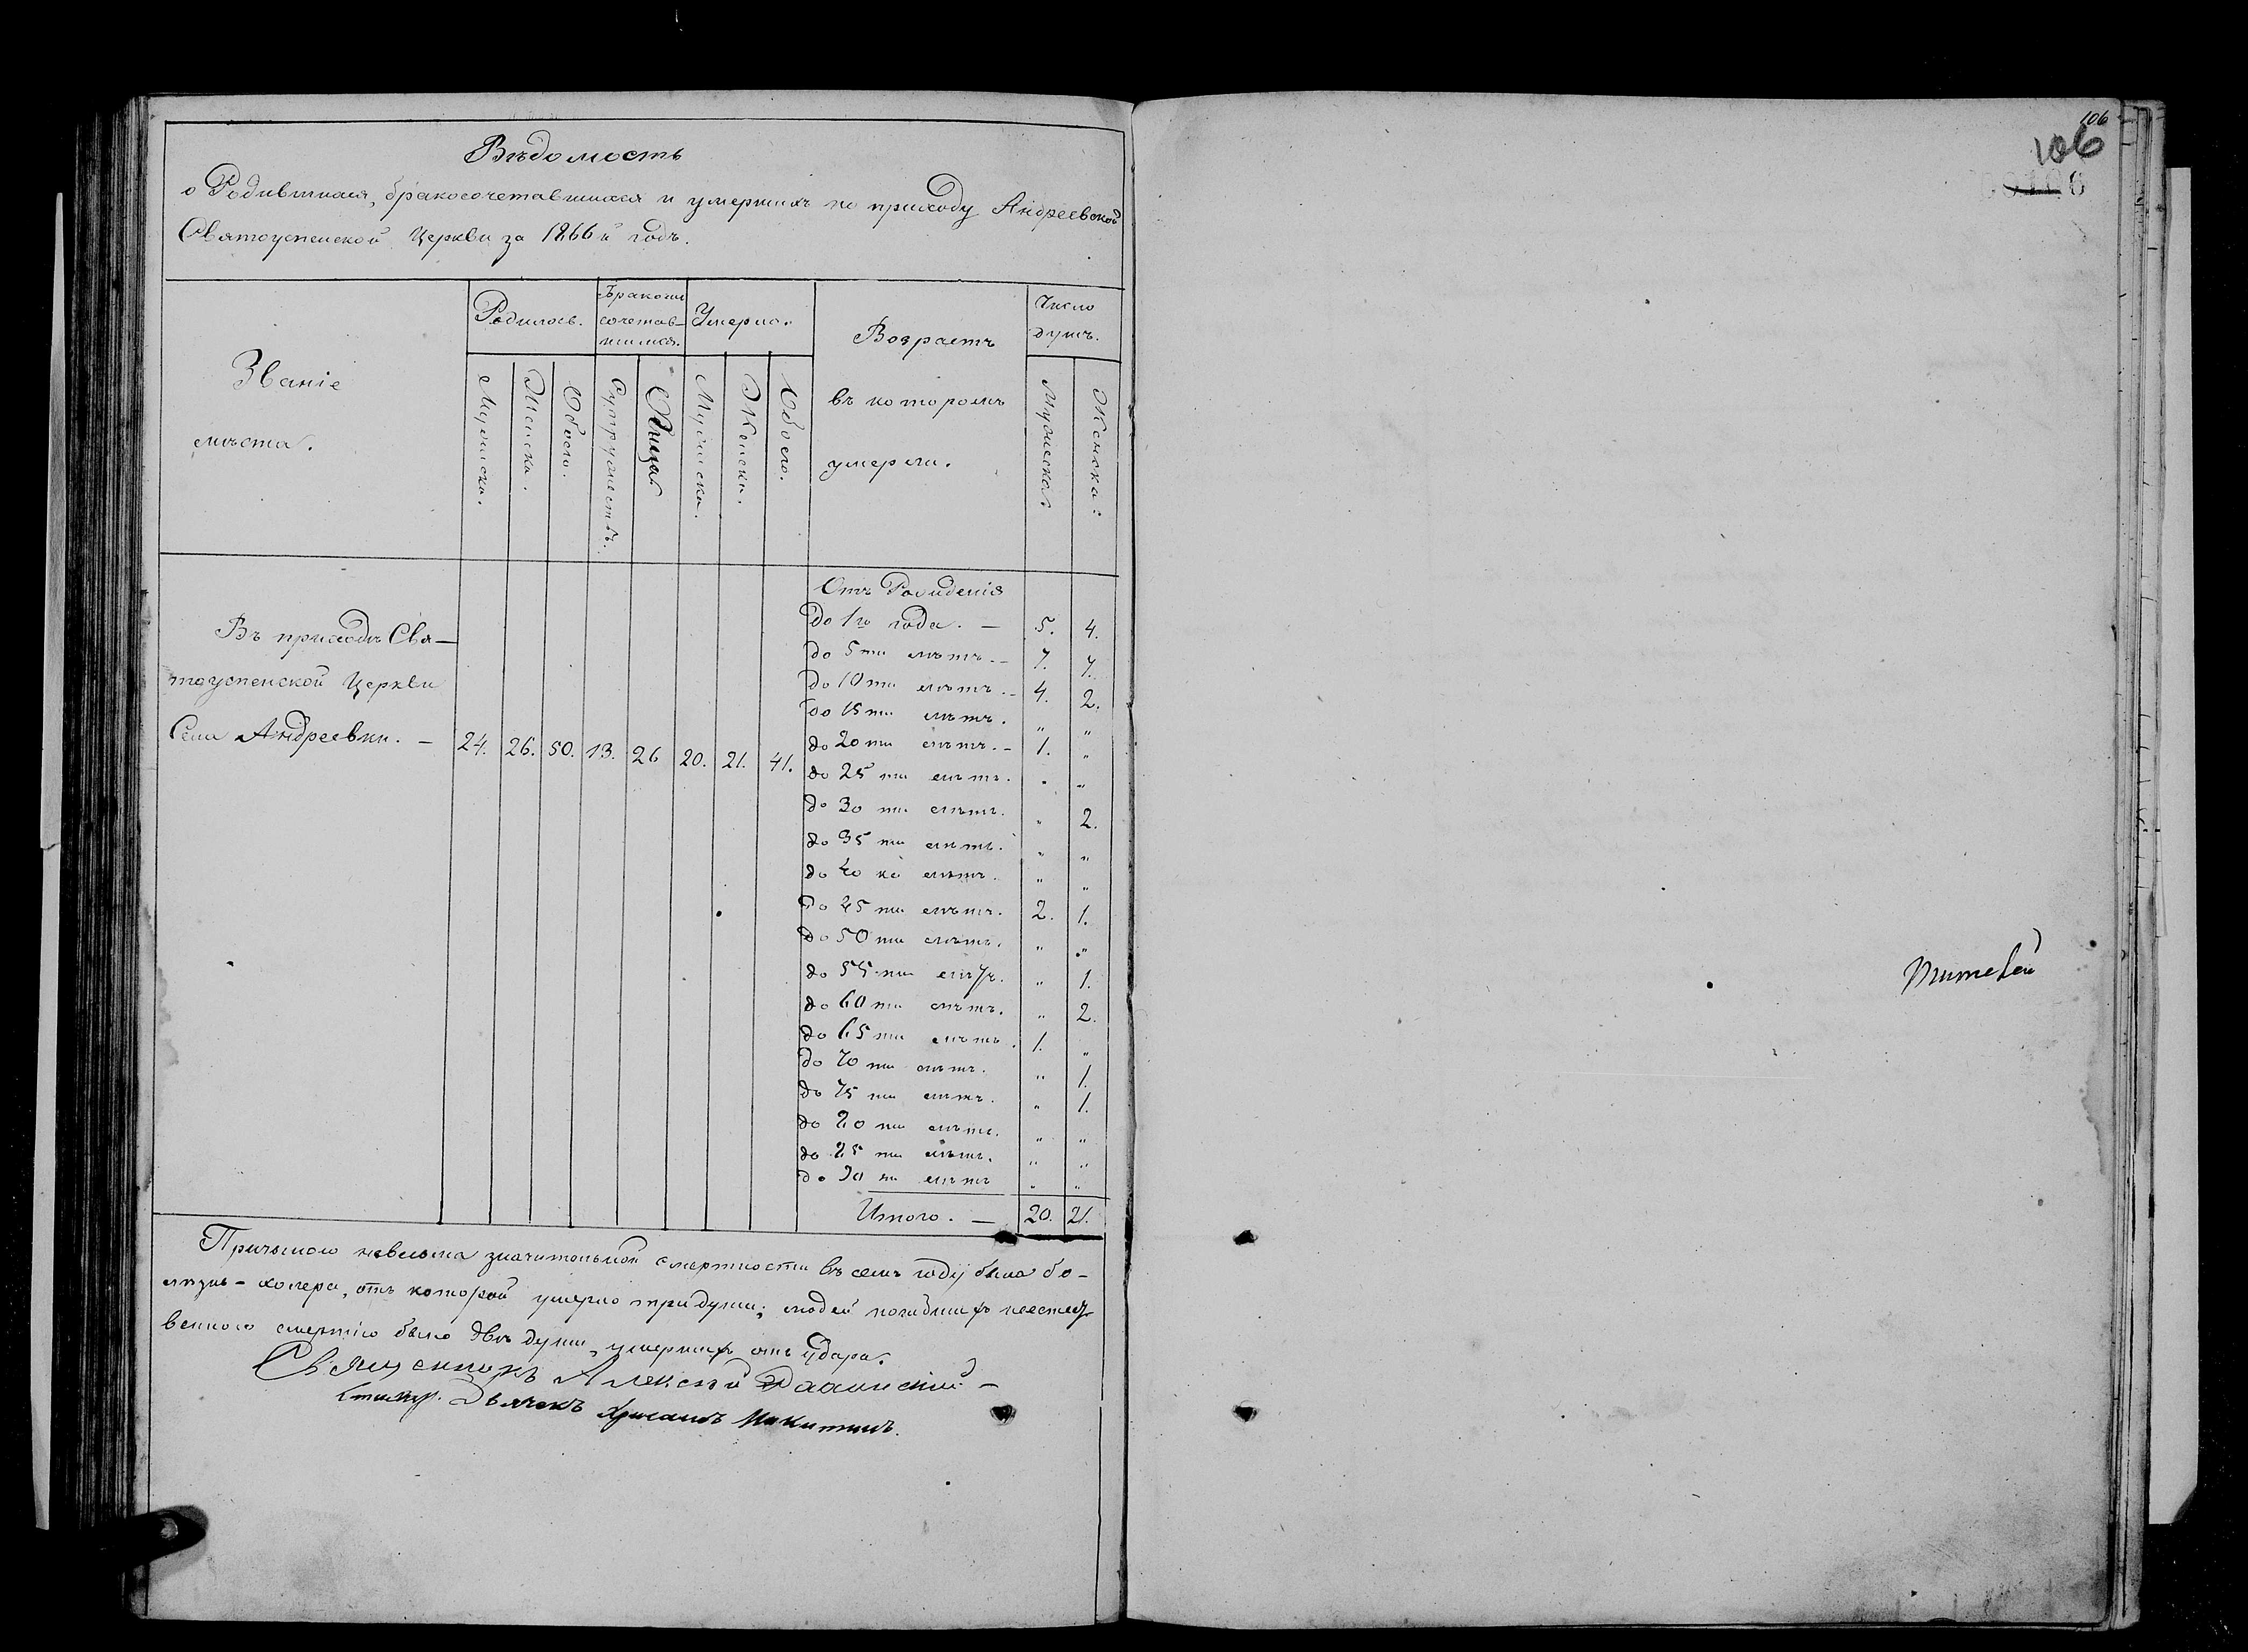 Вѣдомость
о Родившихся, бракосочетавшихся и умершихъ по приходу Андреевской
Святоуспенской Церкви за 1866й годъ.
Званіе
мѣста.
Родилось.
Бракомъ
сочетав-
шихся.
Умерло.
Возрастъ
въ которомъ
умерли.
Число
душъ.
Мужеска.
Женска.
Обоего.
Супружествъ.
Лица
Мужеска.
Женска.
Обоего.
Мужеска.
Женска.
Въ приходѣ Свя-
тоуспенской Церкви
Села Андреевки. — 24. 26. 50. 13. 26 20. 21. 41.
Отъ Рожденія
до 1го года. — 5. 4.
до 5ти лѣтъ. - 7. 7.
до 10ти лѣтъ. - 4. 2.
до 15ти лѣтъ. „ „
до 20ти лѣтъ. - 1. „
до 25ти лѣтъ. „ „
до 30ти лѣтъ. „ 2.
до 35ти лѣтъ. „ „
до 40ка лѣтъ. „ „
до 45ти лѣтъ. 2. 1.
до 50ти лѣтъ. „ „
до 55ти лѣтъ. „ 1.
до 60ти лѣтъ. „ 2.
до 65ти лѣтъ. 1. „
до 70ти лѣтъ. „ 1.
до 75ти лѣтъ. „ 1.
до 80ти лѣтъ. „ „
до 85ти лѣтъ. „ „
до 90ти лѣтъ „ „
Итого. — 20. 21.
Причиною невесьма значительной смертности въ семъ году была бо-
лѣзнь - холера, отъ которой умерло три души; людей погибшихъ неестест
венною смертію было двѣ души, умершихъ отъ удара.
Священникъ Алексѣй
Дьячекъ Никитинъ.
106
106
00106